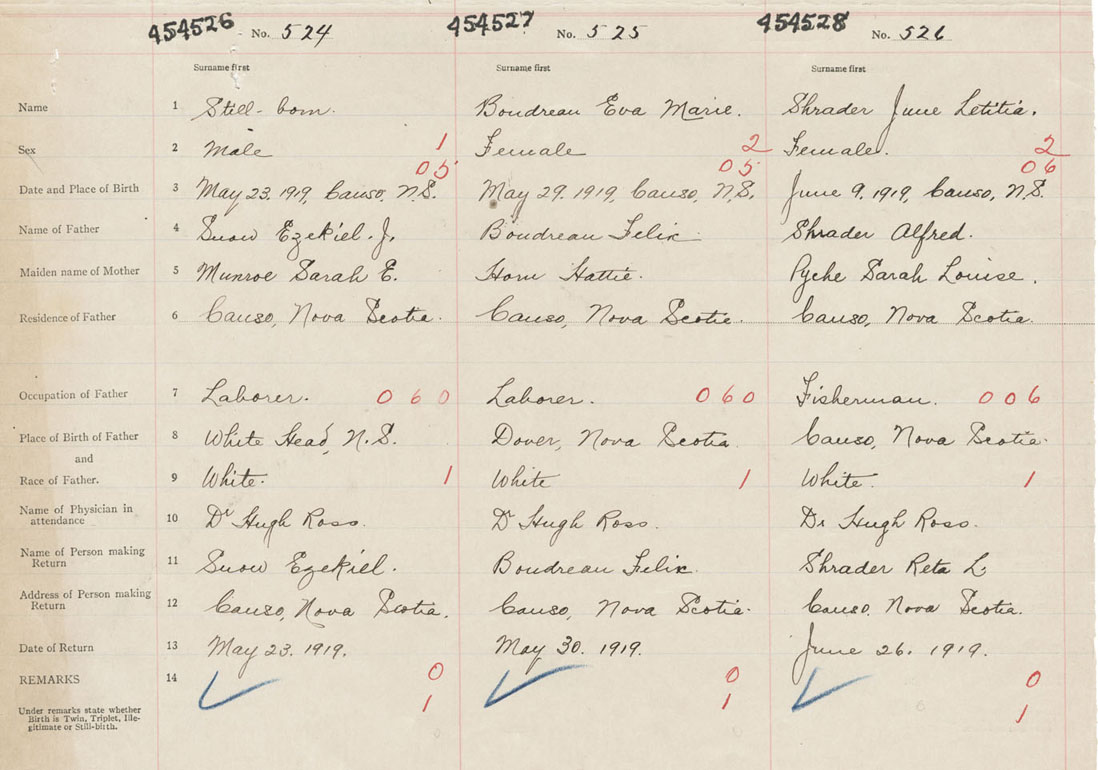 454526 No. 524 454527 No. 525 454528 No. 526
Surname first Surname first Surname first
Name 1 Still-born. Boudreau Eva Marie. Shrader June Letitia.
Sex 2 Male 1 Female 2 Female. 2
05 05 06
Date and Place of Birth 3 May 23. 1919, Canso, N.S. May 29. 1919, Canso, N.S. June 9. 1919, Canso, N.S.
Name of Father 4 Snow Ezekiel. J. Boudreau Felix Shrader Alfred.
Maiden name of Mother 5 Munroe Sarah E. Horn Hattie. Pyche Sarah Louise.
Residence of Father 6 Canso, Nova Scotia. Canso, Nova Scotia. Canso, Nova Scotia.
Occupation of Father 7 Laborer. 060 Laborer. 060 Fisherman. 006
Place of Birth of Father 8 White Head, N.S. Dover, Nova Scotia Canso, Nova Scotia.
and
Race of Father. 9 White. 1 White 1 White. 1
Name of Physician in
attendance 10 Dr Hugh Ross. Dr Hugh Ross. Dr Hugh Ross.
Name of Person making
Return 11 Snow Ezekiel. Boudreau Felix. Shrader Reta L
Address of Person making
Return 12 Canso, Nova Scotia. Canso, Nova Scotia. Canso. Nova Scotia.
Date of Return 13 May 23. 1919. May 30. 1919. June 26. 1919.
REMARKS 14 0 0 0
Under remarks state whether
Birth is Twin, Triplet, Ille-
gitimate or Still-birth. 1 1 1